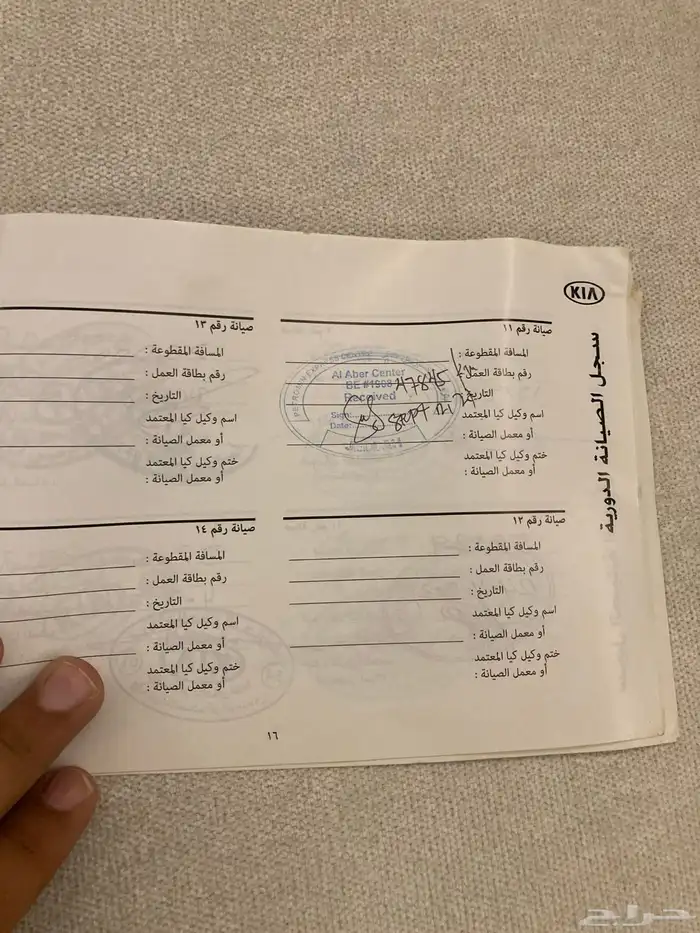 KIA
سجل الصيانة الدورية
صيانة رقم ١١
المسافة المقطوعة :
رقم بطاقة العمل :
التاريخ
اسم وكيل كيا المعتمد
أو معمل الصيانة :
ختم وكيل كيا المعتمد
أو معمل الصيانة :
Al Aber Center
Received
Sign:
Date:
47845
Sept
صيانة رقم ١٢
المسافة المقطوعة :
رقم بطاقة العمل :
التاريخ :
اسم وكيل كيا المعتمد
أو معمل الصيانة :
ختم وكيل كيا المعتمد
أو معمل الصيانة :
صيانة رقم ١٣
المسافة المقطوعة :
رقم بطاقة العمل :
التاريخ :
اسم وكيل كيا المعتمد
أو معمل الصيانة :
ختم وكيل كيا المعتمد
أو معمل الصيانة :
صيانة رقم ١٤
المسافة المقطوعة :
رقم بطاقة العمل :
التاريخ :
اسم وكيل كيا المعتمد
أو معمل الصيانة :
ختم وكيل كيا المعتمد
أو معمل الصيانة :
١٦
حراج